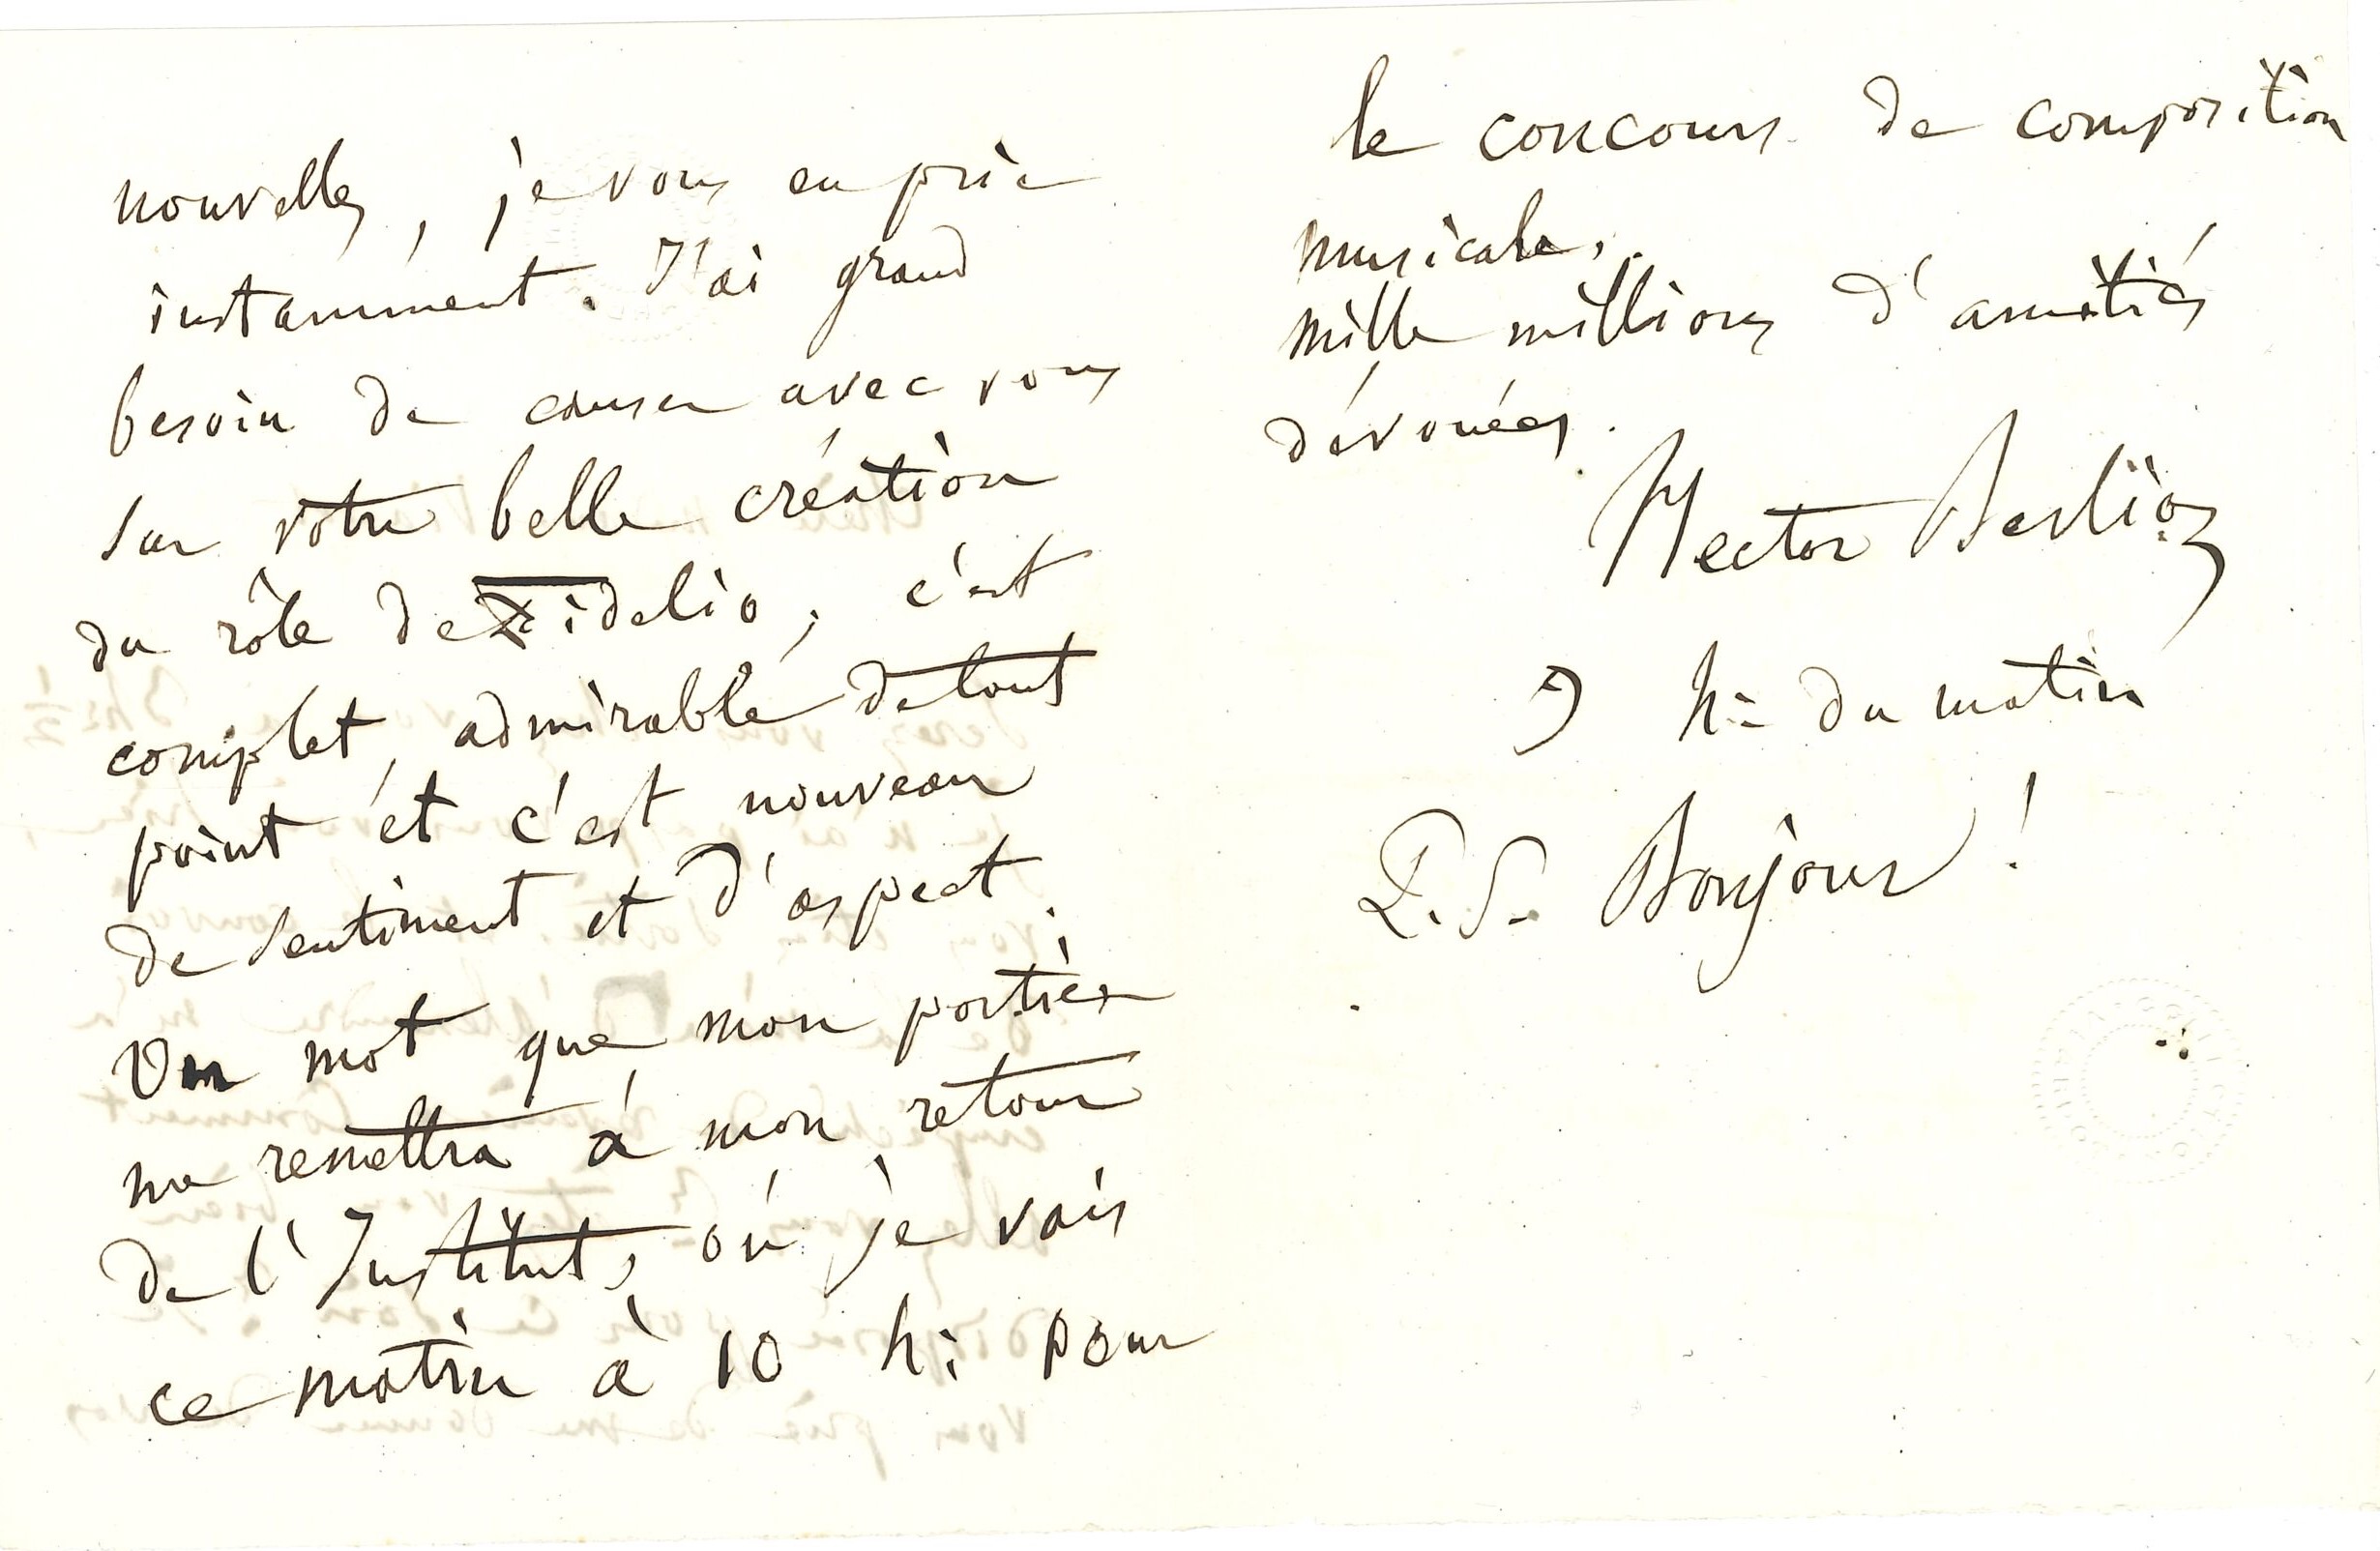 nouvelles, je vous en prie
instamment. J'ai grand
besoin de causer avec vous
sur votre belle création
du rôle de Fidelio; c'est
complet, admirable de tout
point et c'est nouveau
de sentiment et d'aspect.
Un mot que mon portier
me remettra à mon retour
de l'Institut, où je vais
ce matin à 10 h: pour
le concours de composition
musicale.
mille millions d'amitiés
dévouées.
Hector Berlioz
9 h= du matin
P.S. Bonjour!